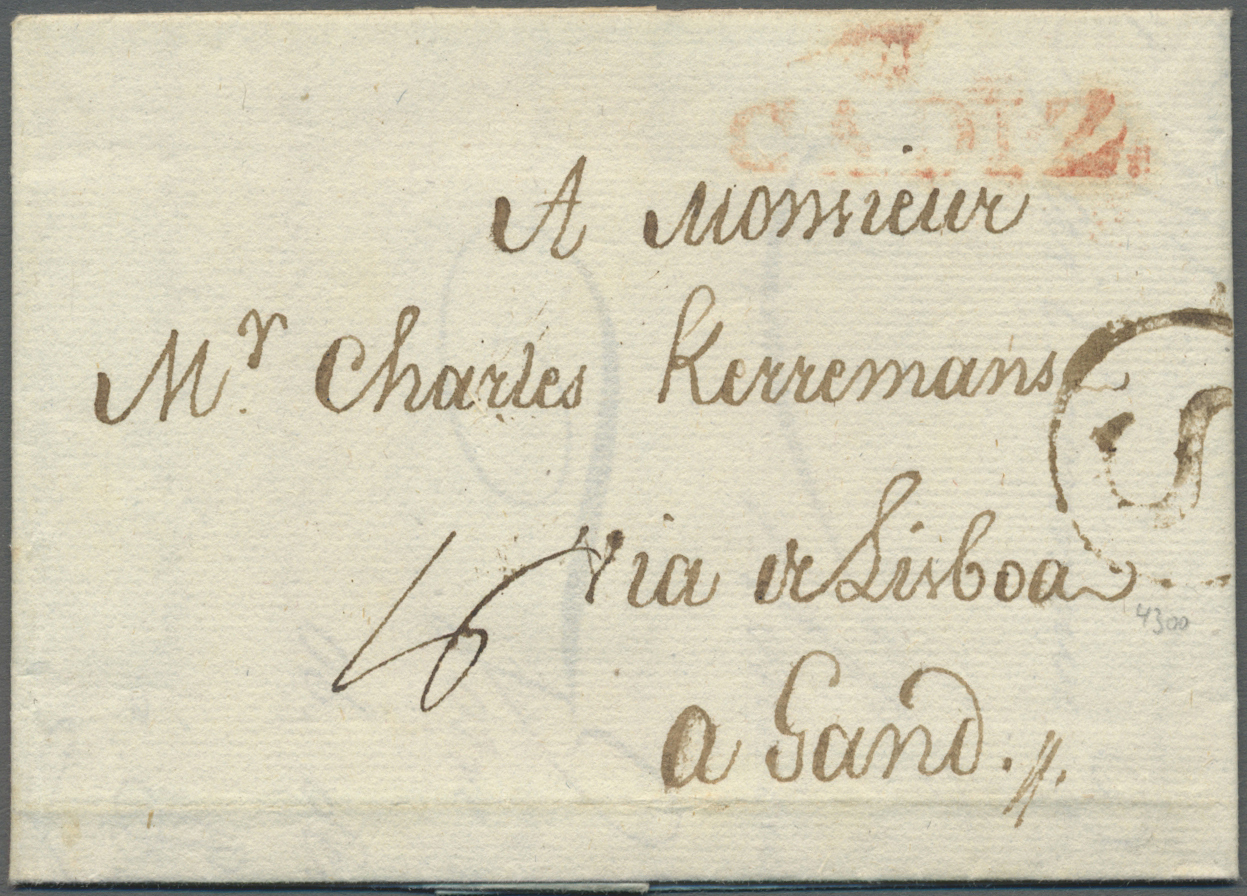 CADIZ.
A Monsieur
Mr. Charles Kerremans
S
Via de Lisboa
4300
a Gand.